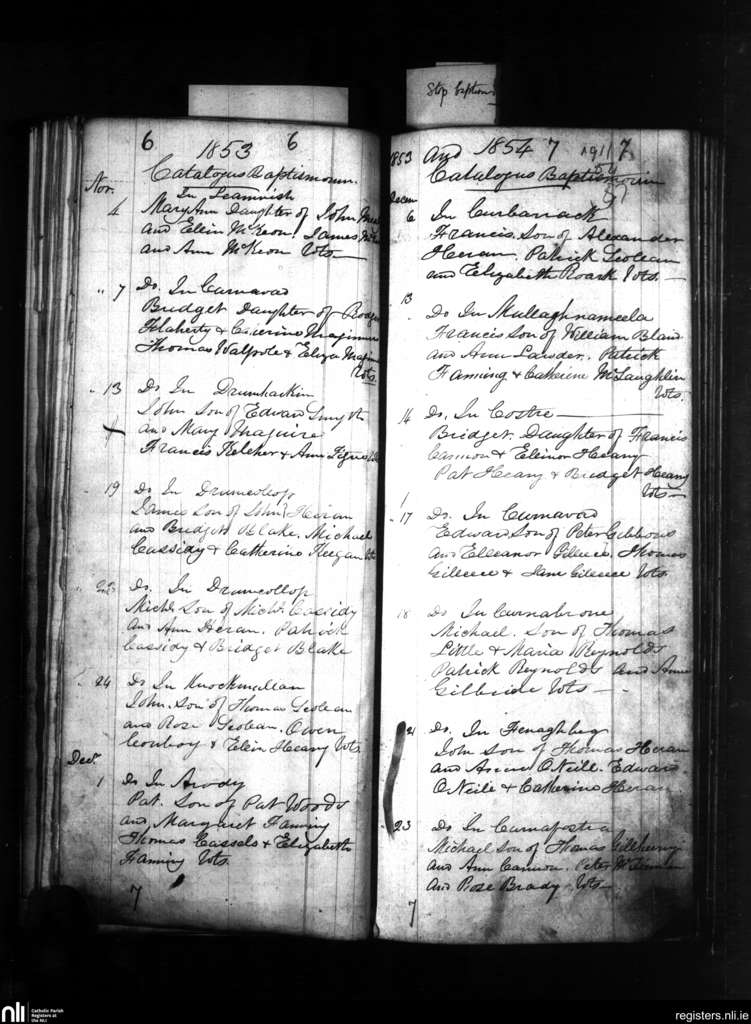 Stop Baptisms
6 1853 6
Catalogus Baptismorum.
Nov. In Leamnish
4 Mary Ann Daughter of John
and Ellin McKeon. James
and Ann McKeon Vots
" 7 Do. In Carnavad
Bridget Daughter of
Flaherty & Caterine Maginnis
Thomas Walpole & Eliza
Vots.
" 13 Do In Drumhackin
John Son of Edward Smyth
and Mary Maguire
Francis Keleher & Ann
" 19 Do In Drumcollop
James Son of John Heran
and Bridget Blake. Michael
Cassidy & Catherine Keegan
Do. In Drumcollop
Michl. Son of Michl. Cassidy
and Ann Heran. Patrick
Cassidy & Bridget Blake
" 24 Do In Knockmullan
John. Son of Thomas Scolean
and Rose Scolean. Owen
Conboy & Ellin Heany Vots
Decr.
1 Do In Arody
Pat. Son of Pat Woods
and Margaret Fanning
Thomas Cassels & Elizabeth
Fanning Vots.
7
1853 and 1854 7 7
Catalogus Baptismorum
Decem
6 In Curbarrack
Francis Son of Alexander
Heran. Patrick Scolean
and Elizabeth Roark Vots.
13
Do In Mullaghnameela
Francis Son of William Bland
and Ann Lausden. Patrick
Fanning & Catherine McLaughlin
Vots.
14 Do. In Costre
Bridget. Daughter of Francis
Cannon & Elleinor Heany
Pat Heany & Bridget Heany
Vots
17 Do. In Curnavad
Edward Son of Peter Gibbons
and Elleanor Gilleece. Thomas
Gileece & Jane Gileece Vots
18 Do In Curnabrone
Michael. Son of Thomas
Little & Maria Reynolds
Patrick Reynolds and Anne
Gilbride Vots
21 Do. In Fenaghbeg
John Son of Thomas Heran
and Anne O'Neill. Edward
O'Neile & Catherine Heran
23 Do In
Michael Son of Thomas
and Ann Cannon. Peter
and Rose Brady Vots
7
nli Catholic Parish
Registers at
the NLI
registers.nli.ie